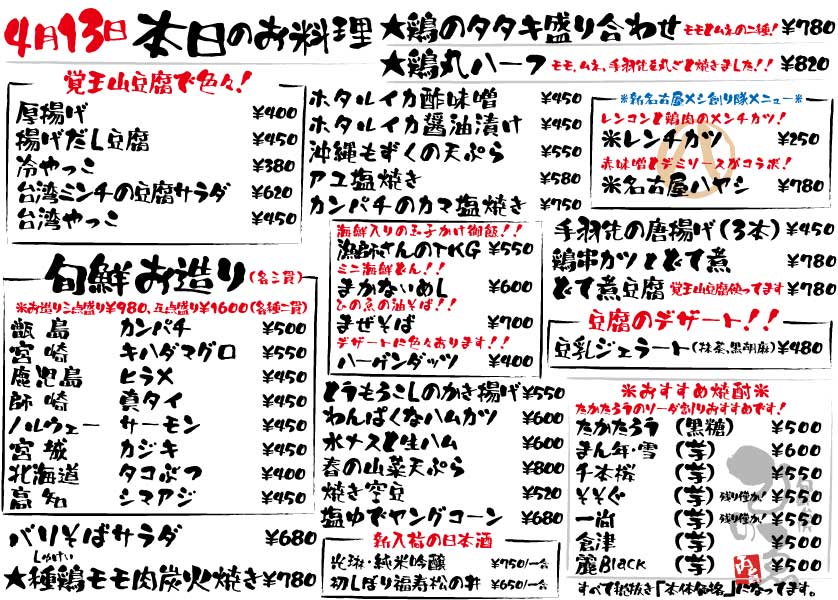 4月13日 本日のお料理
★鶏のタタキ盛り合わせ モモとムネの二種! ¥780
★鶏丸ハーフ モモ、ムネ、手羽先を丸ごと焼きました!! ¥820
覚王山豆腐で色々!
厚揚げ ¥400
揚げだし豆腐 ¥450
冷やっこ ¥380
台湾ミンチの豆腐サラダ ¥620
台湾やっこ ¥450
旬鮮お造り(各三貫)
※お造り三点盛り¥980、五点盛り¥1600(各種二貫)
甑島 カンパチ ¥500
宮崎 キハダマグロ ¥550
鹿児島 ヒラメ ¥450
師崎 真タイ ¥450
ノルウェー サーモン ¥450
宮城 カジキ ¥450
北海道 タコぶつ ¥400
高知 シマアジ ¥450
バリそばサラダ ¥680
しゅけい
★種鶏モモ肉炭火焼き ¥780
ホタルイカ酢味噌 ¥450
ホタルイカ醤油漬け ¥450
沖縄もずくの天ぷら ¥550
アユ塩焼き ¥580
カンパチのカマ塩焼き ¥750
海鮮入りの玉子かけ御飯!!
漁師さんのTKG ¥550
ミニ海鮮どん!!
まかないめし ¥600
ひの魚の油そば!!
まぜそば ¥700
デザートに色々あります!!
ハーゲンダッツ ¥400
とうもろこしのかき揚げ ¥550
わんぱくなハムカツ ¥600
水ナスと生ハム ¥600
春の山菜天ぷら ¥800
焼き空豆 ¥520
塩ゆでヤングコーン ¥680
新入荷の日本酒
光琳・純米吟醸 ¥750/一合
初しぼり福寿松の井 ¥650/一合
※新名古屋メシ創り隊メニュー※
レンコンと鶏肉のメンチカツ!
※レンチカツ ¥250
赤味噌とデミソースがコラボ!
※名古屋ハヤシ ¥780
手羽先の唐揚げ(3本) ¥450
鶏串カツとどて煮 ¥780
どて煮豆腐 覚王山豆腐使ってます ¥780
豆腐のデザート!!
豆乳ジェラート(抹茶、黒胡麻) ¥480
※おすすめ焼酎※
たかたろうのソーダ割りおすすめです!
たかたろう (黒糖) ¥500
まん年・雪 (芋) ¥600
千本桜 (芋) ¥550
そそぐ (芋) 残り僅か! ¥550
一尚 (芋) 残り僅か! ¥550
倉津 (芋) ¥500
麗Black (芋) ¥500
すべて税抜き「本体価格」になってます。